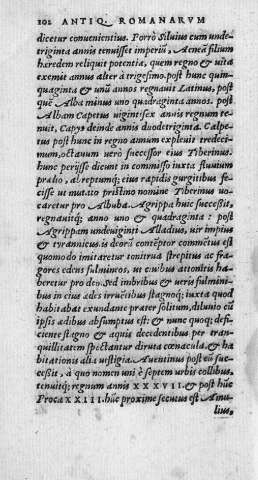 102 ANTIQ. ROMANARVM
dicetur conuenientius. Porrò Siluium cum unde-
triginta annis tenuisset imperiũ, Aeneã filium
hæredem reliquit potentiæ, quem regno & uita
exemit annus alter à trigesimo. post hunc quin-
quaginta & unũ annos regnauit Latinus, post
quẽ Alba minus uno quadraginta annos. post
Albam Capetus uigintisex annis regnum te-
nuit, Capys deinde annis duodetriginta. Calpe-
tus post hunc in regno annum expleuit tredeci-
mum, octauum uerò successor eius Tiberinus.
hunc perijsse dicunt in commisso iuxta fluuium
prælio, abreptumq; eius rapidis gurgitibus fe-
cisse ut mutato pristino nomine Tiberinus uo-
caretur pro Albula. Agrippa huic successit,
regnauitq; anno uno & quadraginta: post
Agrippam undeuiginti Alladius, uir impius
& tyrannicus, is deorũ contẽptor commẽtus est
quomodo imitaretur tonitrua strepitus ac fra-
gores edens fulmineos, ut ciuibus attonitis ha-
beretur pro deo, sed imbribus & ueris fulmini-
bus in eius ædes irruẽtibus stagnoq; iuxta quod
habitabat exundante præter solitum, diluuio cũ
ipsis ædibus absumptus est: & nunc quoq; defi-
ciente stagno & aquis decidentibus per tran-
quillitatem spectantur diruta cœnacula, & ha
bitationis alia uestigia. Auentinus post eũ suc-
cessit, à quo nomen uni è septem urbis collibus,
tenuitq; regnum annis XXXVII. & post hũc
Proca XXIII. hũc proxime secutus est Amu-
lius,